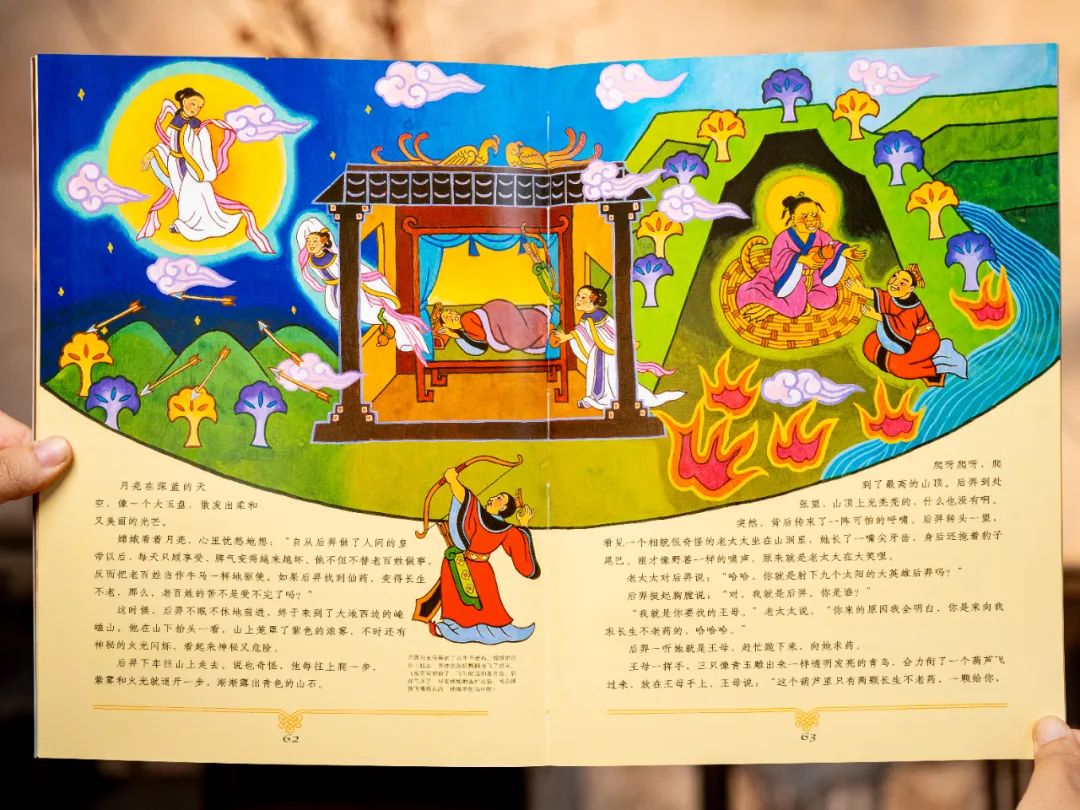 月亮在深蓝的天
空，像一个大玉盘，散发出柔和
又美丽的光芒。
嫦娥看着月亮，心里忧愁地想：“自从后羿做了人间的皇
帝以后，每天只顾享受，脾气变得越来越坏，他不但不替老百姓做事，
反而把老百姓当作牛马一样地驱使。如果后羿找到仙药，变得长生
不老，那么，老百姓的苦不是受不完了吗？”
这时候，后羿不眠不休地前进，终于来到了大地西边的崦
嵫山。他在山下抬头一看，山上笼罩了紫色的浓雾，不时还有
神秘的火光闪烁，看起来神秘又危险。
后羿下车往山上走去。说也奇怪，他每往上爬一步，
紫雾和火光就退开一步，渐渐露出青色的山石。
62
爬呀爬呀，爬
到了最高的山顶。后羿到处
张望，山顶上光秃秃的，什么也没有啊。
突然，背后传来了一阵可怕的呼啸，后羿转头一望，
看见一个相貌很奇怪的老太太坐在山洞里，她长了一嘴尖牙齿，身后还拖着豹子
尾巴，刚才像野兽一样的啸声，原来就是老太太在大笑呢。
老太太对后羿说：“哈哈，你就是射下九个太阳的大英雄后羿吗？”
后羿挺起胸膛说：“对，我就是后羿，你是谁？”
“我就是你要找的王母。”老太太说，“你来的原因我全明白，你是来向我
求长生不老药的，哈哈哈。”
后羿一听她就是王母，赶忙跪下来，向她求药。
王母一挥手，三只像青玉雕出来一样透明发亮的青鸟，合力衔了一个葫芦飞
过来，放在王母手上，王母说：“这个葫芦里只有两颗长生不老药，一颗给你，
63